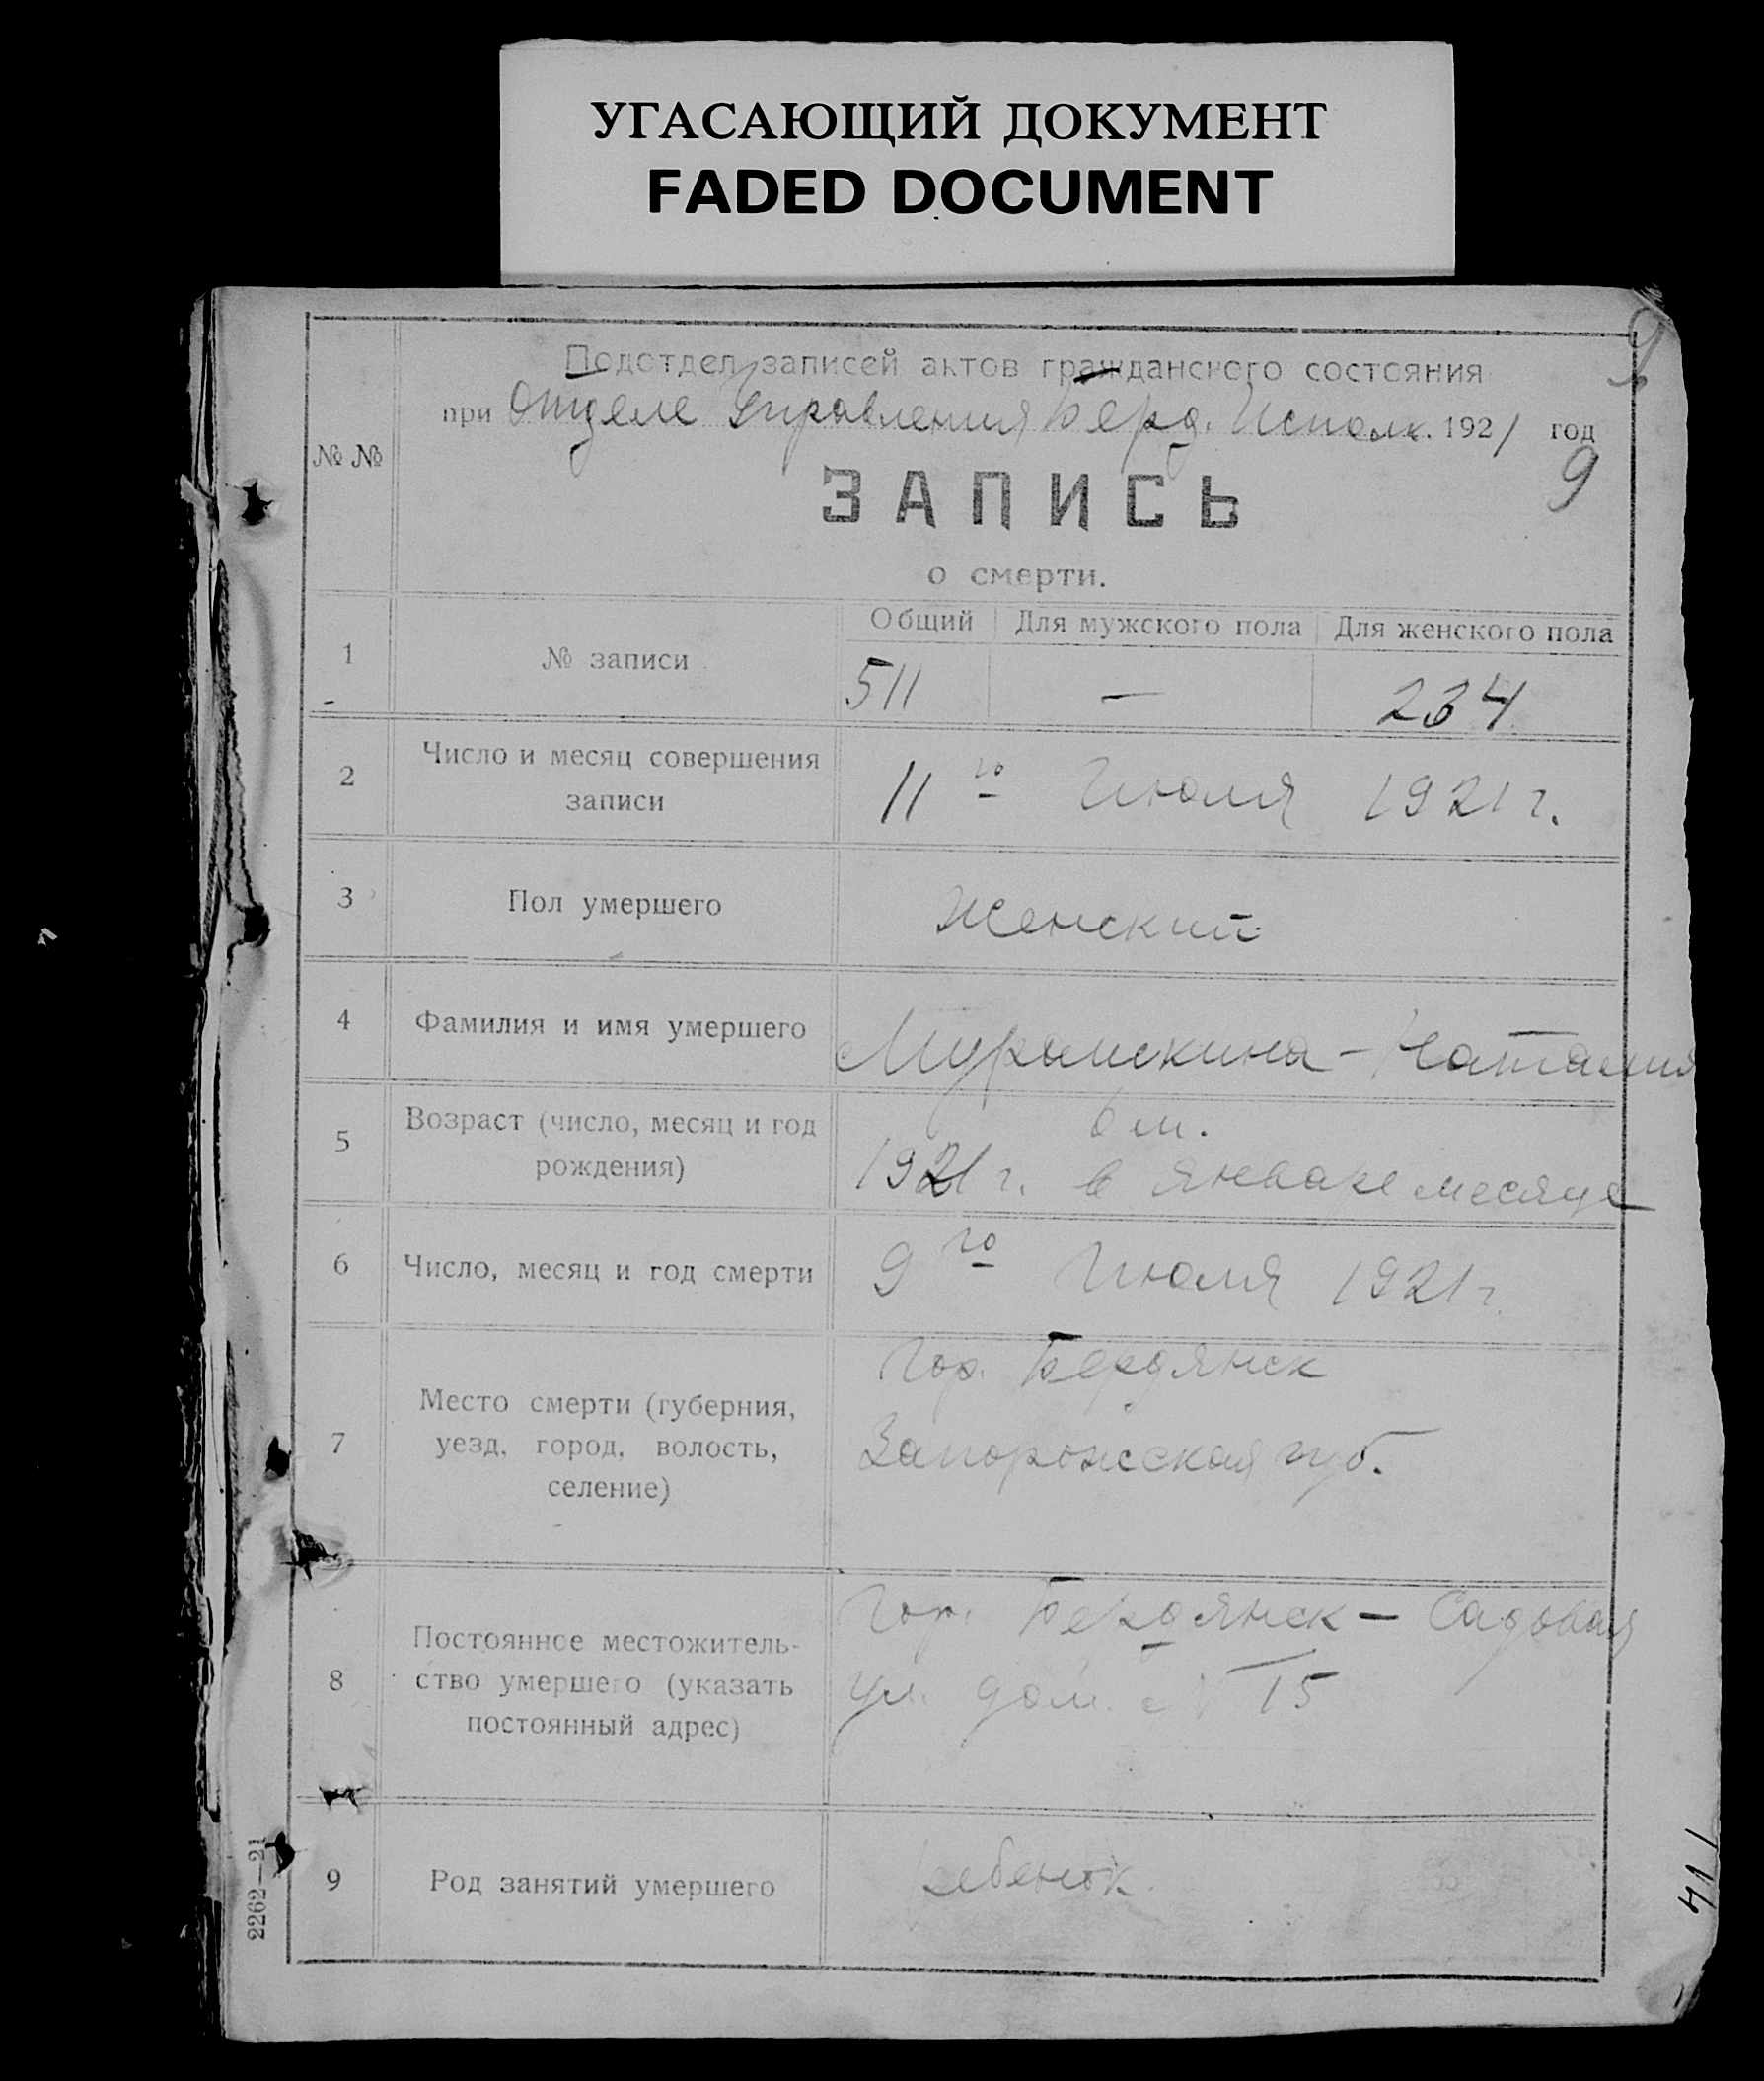 УГАСАЮЩИЙ ДОКУМЕНТ
FADED DOCUMENT
9
Подотдел записей актов гражданского состояния
при Отделе Управления Берд. Исполк. 1921 год
9
№ №
ЗАПИСЬ
о смерти.
Общий Для мужского пола Для женского пола
1 № записи 511 — 234
2 Число и месяц совершения
записи
11го Июля 1921 г.
3 Пол умершего Женский
4 Фамилия и имя умершего Наталия
5 Возраст (число, месяц и год
рождения)
6 м.
1921 г. в Январе месяце
6 Число, месяц и год смерти 9го Июля 1921 г.
7 Место смерти (губерния,
уезд, город, волость,
селение)
Гор. Бердянск
Запорожская губ.
8 Постоянное местожитель-
ство умершего (указать
постоянный адрес)
Гор. Бердянск — Садовая
ул. дом. № 15
9 Род занятий умершего ребенок
2262—21